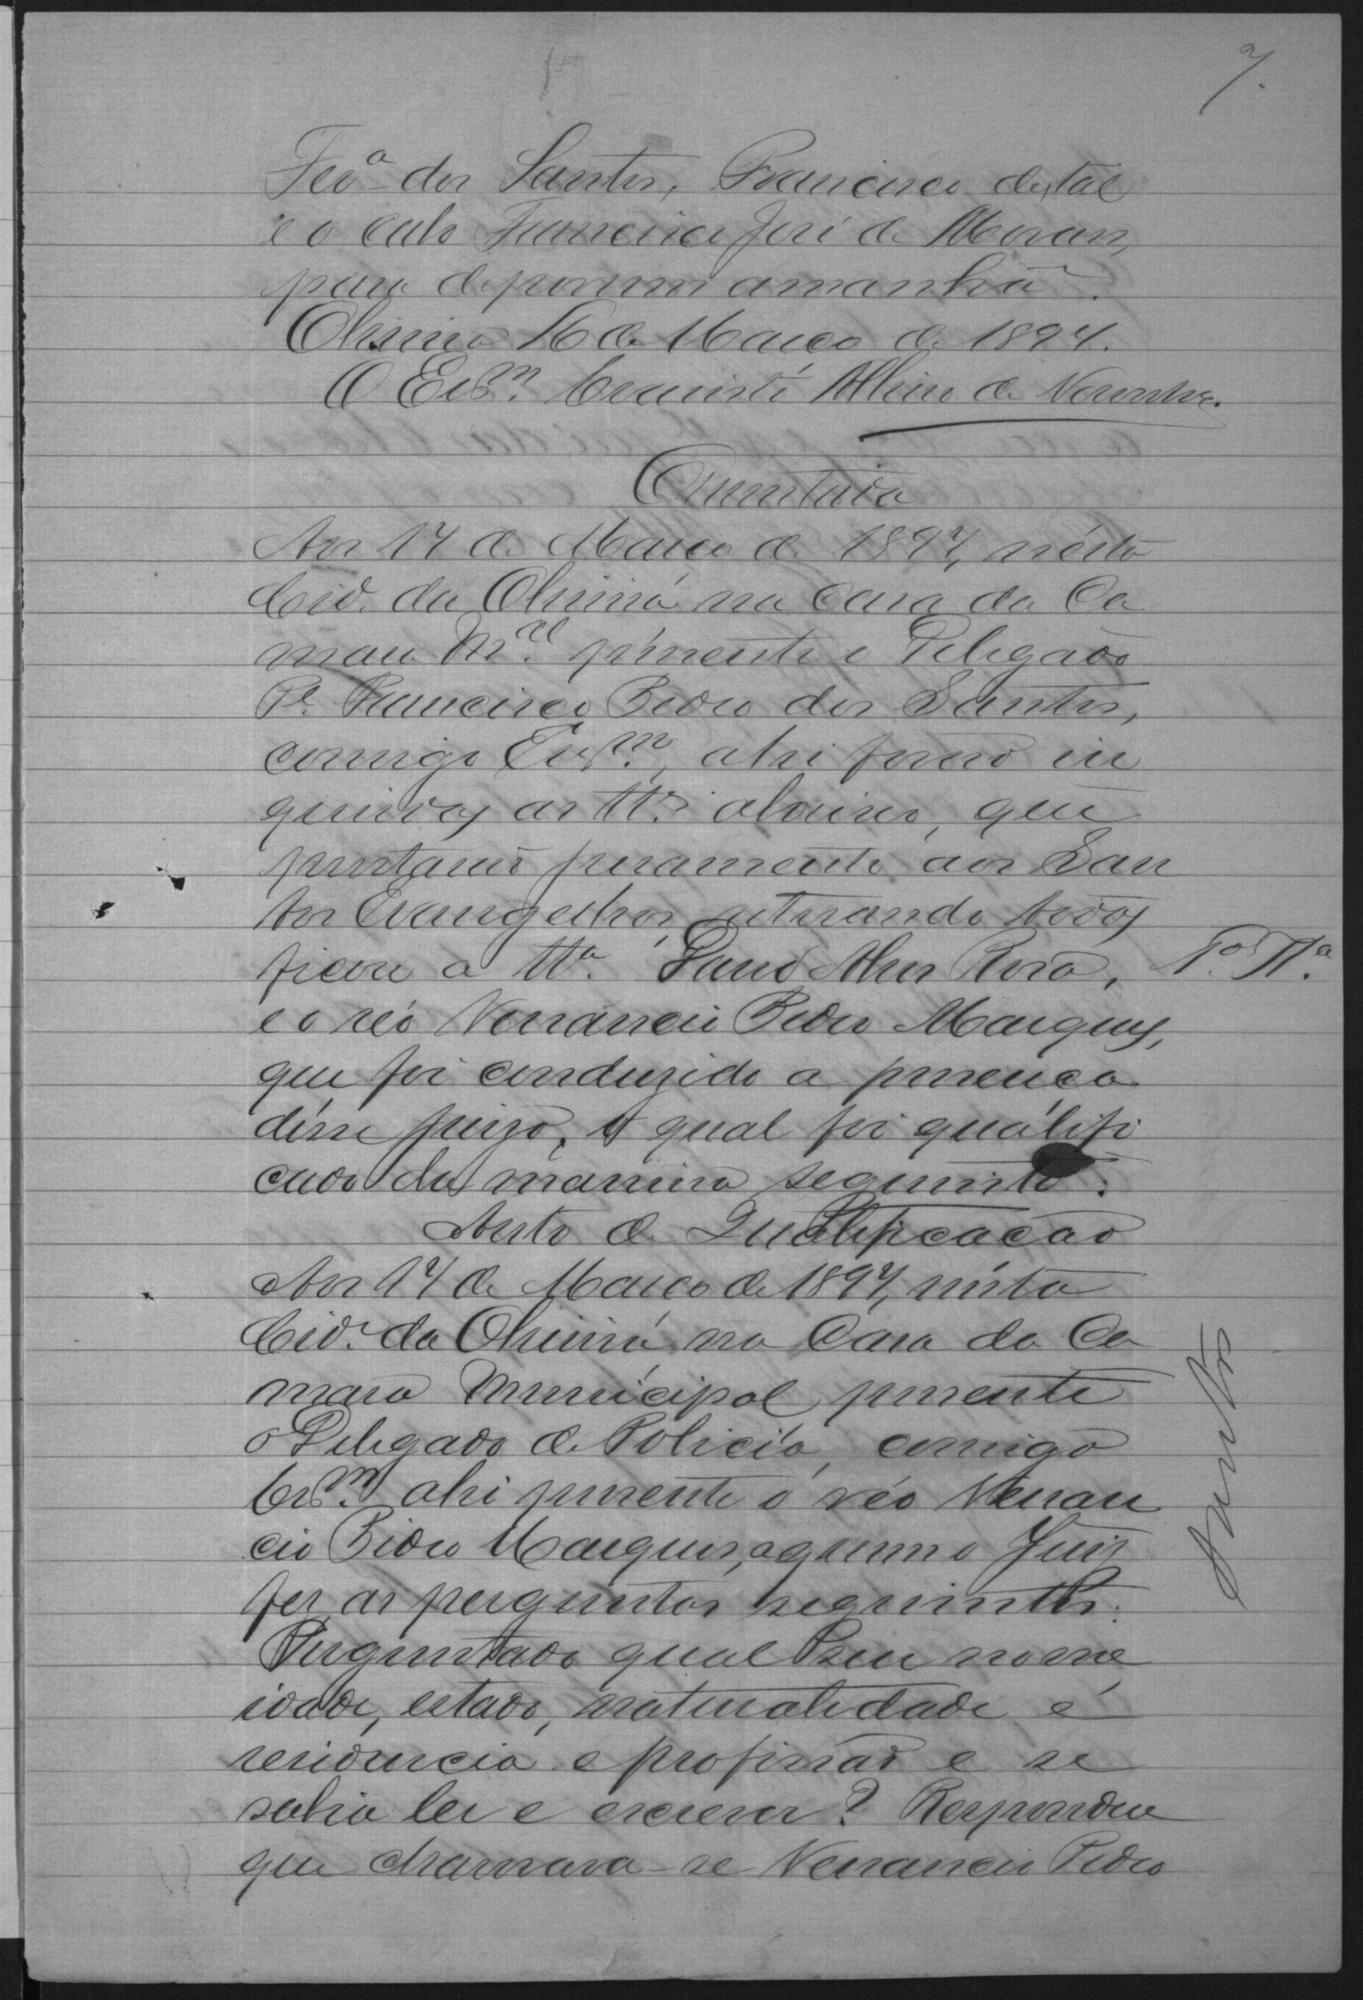 7.
Feo.ª dos Santos, Francisco de tal
e o cabo Francisco José de Moraes,
para deporem amanhã.
16 de Março de 1894.
O Escm. Evaristo Albino de Noronha.
Assentada
Aos 17 de Março de 1894, nésta
Cid. da na Casa da Ca
mara M.al presente o Delegado
P.e Francisco Pedro dos Santos,
comigo Escm., ahi forão in
quiridas as tt.as abaixo, que
prestarão juramento aos San
tos Evangelhos, retirando todos
ficou a tt.a Alves Rosa, 1.a Tt.a
e o réo Venancio Pedro Marques,
que foi conduzido a presença
désse juizo, o qual foi qualifi
cado da maneira seguinte:
Auto de Qualificação
Aos 17 de Março de 1894, nésta
Cid.e da na Casa da Ca
mara Municipal presente
o Delegado de Policia, comigo
Escm. ahi presente o réo Venan
cio Pedro Marques, a quem o Juiz
fez as perguntas seguintes:
Perguntado qual seu nome
idade, estado, naturalidade e
residencia e profissão e se
sabia ler e escrever? Respondeu
que chamava-se Venancio Pedro
Santos